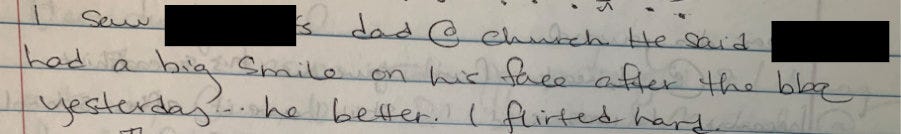 I saw 's dad @ church He said
had a big smile on his face after the bbq
yesterday... he better. I flirted hard.